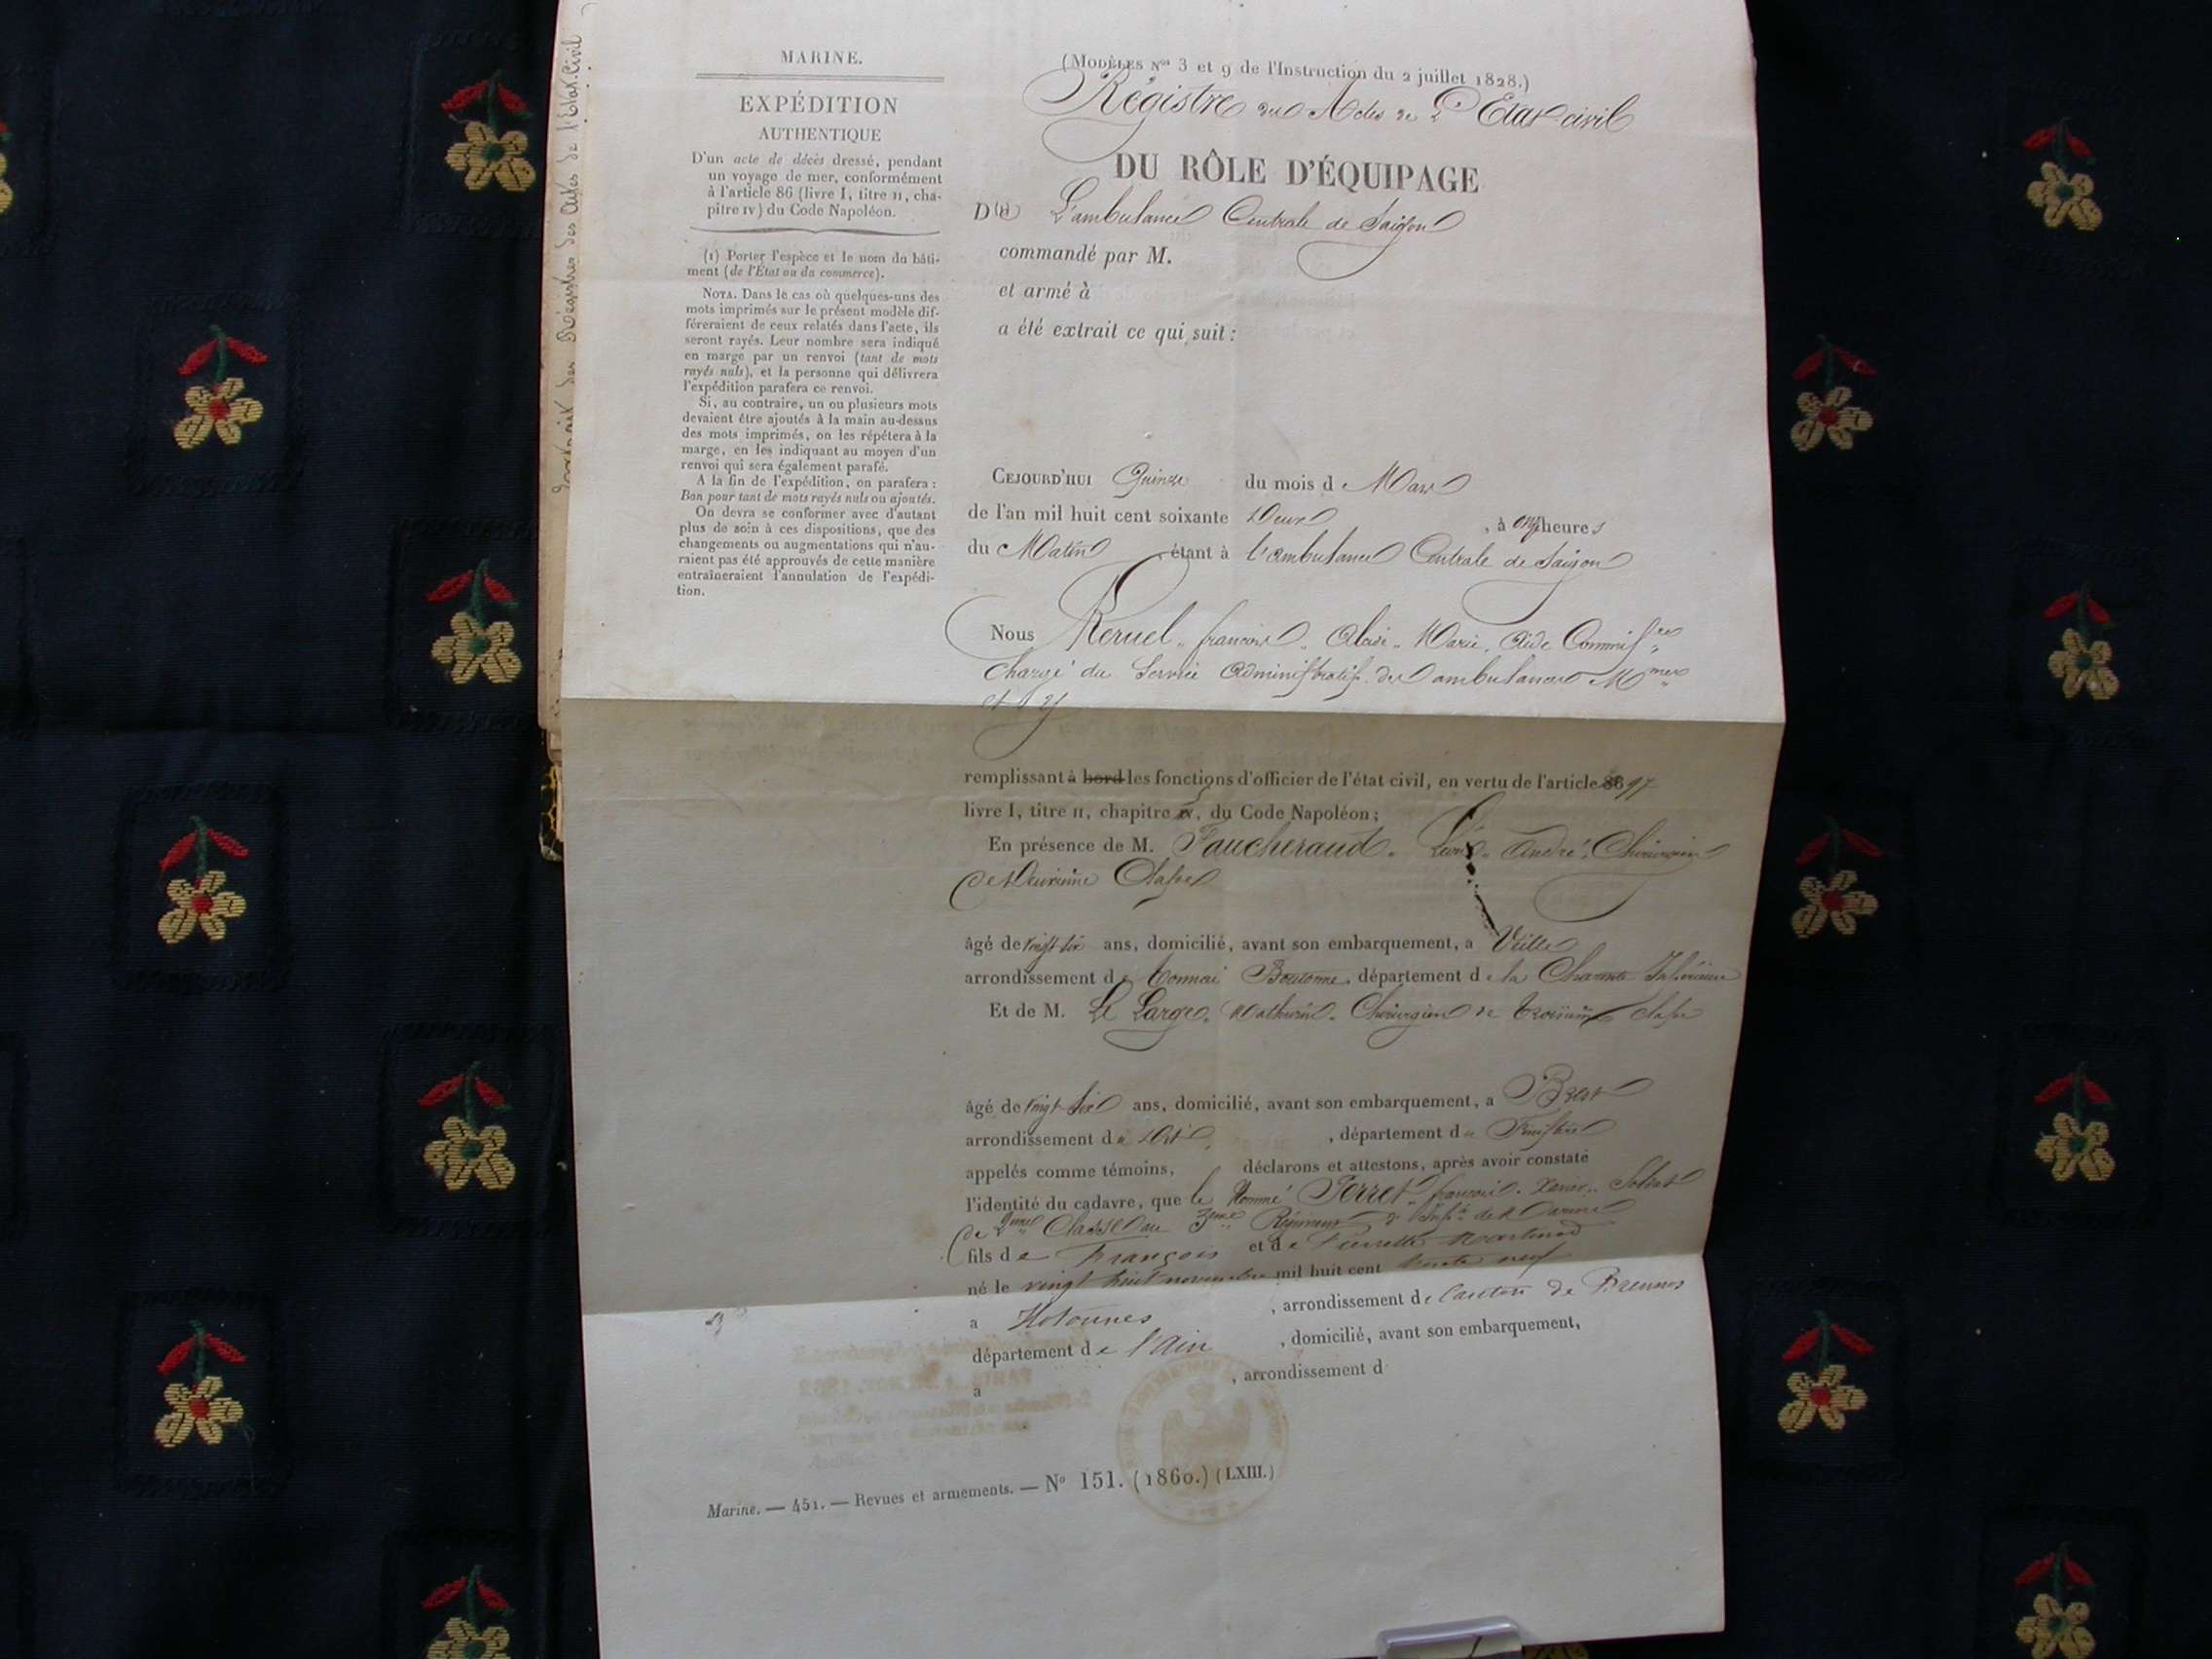 MARINE.
EXPÉDITION
AUTHENTIQUE
D'un acte de décès dressé, pendant
un voyage de mer, conformément
à l'article 86 (livre I, titre II, cha-
pitre IV) du Code Napoléon.
(1) Porter l'espèce et le nom du bâti-
ment (de l'État ou du commerce).
NOTA. Dans le cas où quelques-uns des
mots imprimés sur le présent modèle dif-
féreraient de ceux relatés dans l'acte, ils
seront rayés. Leur nombre sera indiqué
en marge par un renvoi (tant de mots
rayés nuls), et la personne qui délivrera
l'expédition parafera ce renvoi.
Si, au contraire, un ou plusieurs mots
devaient être ajoutés à la main au-dessus
des mots imprimés, on les répétera à la
marge, en les indiquant au moyen d'un
renvoi qui sera également parafé.
A la fin de l'expédition, on parafera :
Bon pour tant de mots rayés nuls ou ajoutés.
On devra se conformer avec d'autant
plus de soin à ces dispositions, que des
changements ou augmentations qui n'au-
raient pas été approuvés de cette manière
entraîneraient l'annulation de l'expédi-
tion.
des Régistres des Actes de l'Etat-Civil
(MODÈLES Nos 3 et 9 de l'Instruction du 2 juillet 1828.)
Régistre des Actes de L'Etat-civil
DU RÔLE D'ÉQUIPAGE
D(1)e L'ambulance Centrale de Saïgon
commandé par M.
et armé à
a été extrait ce qui suit :
CEJOURD'HUI Quinze du mois d Mars
de l'an mil huit cent soixante Deux , à onze heures
du Matin , étant à l'ambulance Centrale de Saïgon
Nous Keruel françois Marie, Aide Commisre
Chargé du Service Administratif des ambulances
remplissant à bord les fonctions d'officier de l'état civil, en vertu de l'article 86 97
livre I, titre II, chapitre IV, du Code Napoléon ;
En présence de M. Faucheraud. Léon André, Chirurgien
de Deuxième Classe
âgé de vingt six ans, domicilié, avant son embarquement, a Vuille
arrondissement de Tonnai Boutonne, département de la Charente Inférieure
Et de M. Le Large, Mathurin. Chirurgien de troisième classe
âgé de vingt Six ans, domicilié, avant son embarquement, a Brest
arrondissement de Dit , département du Finistère
appelés comme témoins, déclarons et attestons, après avoir constaté
l'identité du cadavre, que le Nommé Perret françois. Soldat
de 2me Classe au 3eme Régiment d'Infie de Marine
fils de François et de Pierrette Martinod
né le vingt huit novembre mil huit cent trente neuf
a Hotonnes , arrondissement de Canton de Brennos
département de l'Ain , domicilié, avant son embarquement,
a , arrondissement d
Marine. — 451. — Revues et armements. — No 151. (1860.) (LXIII.)